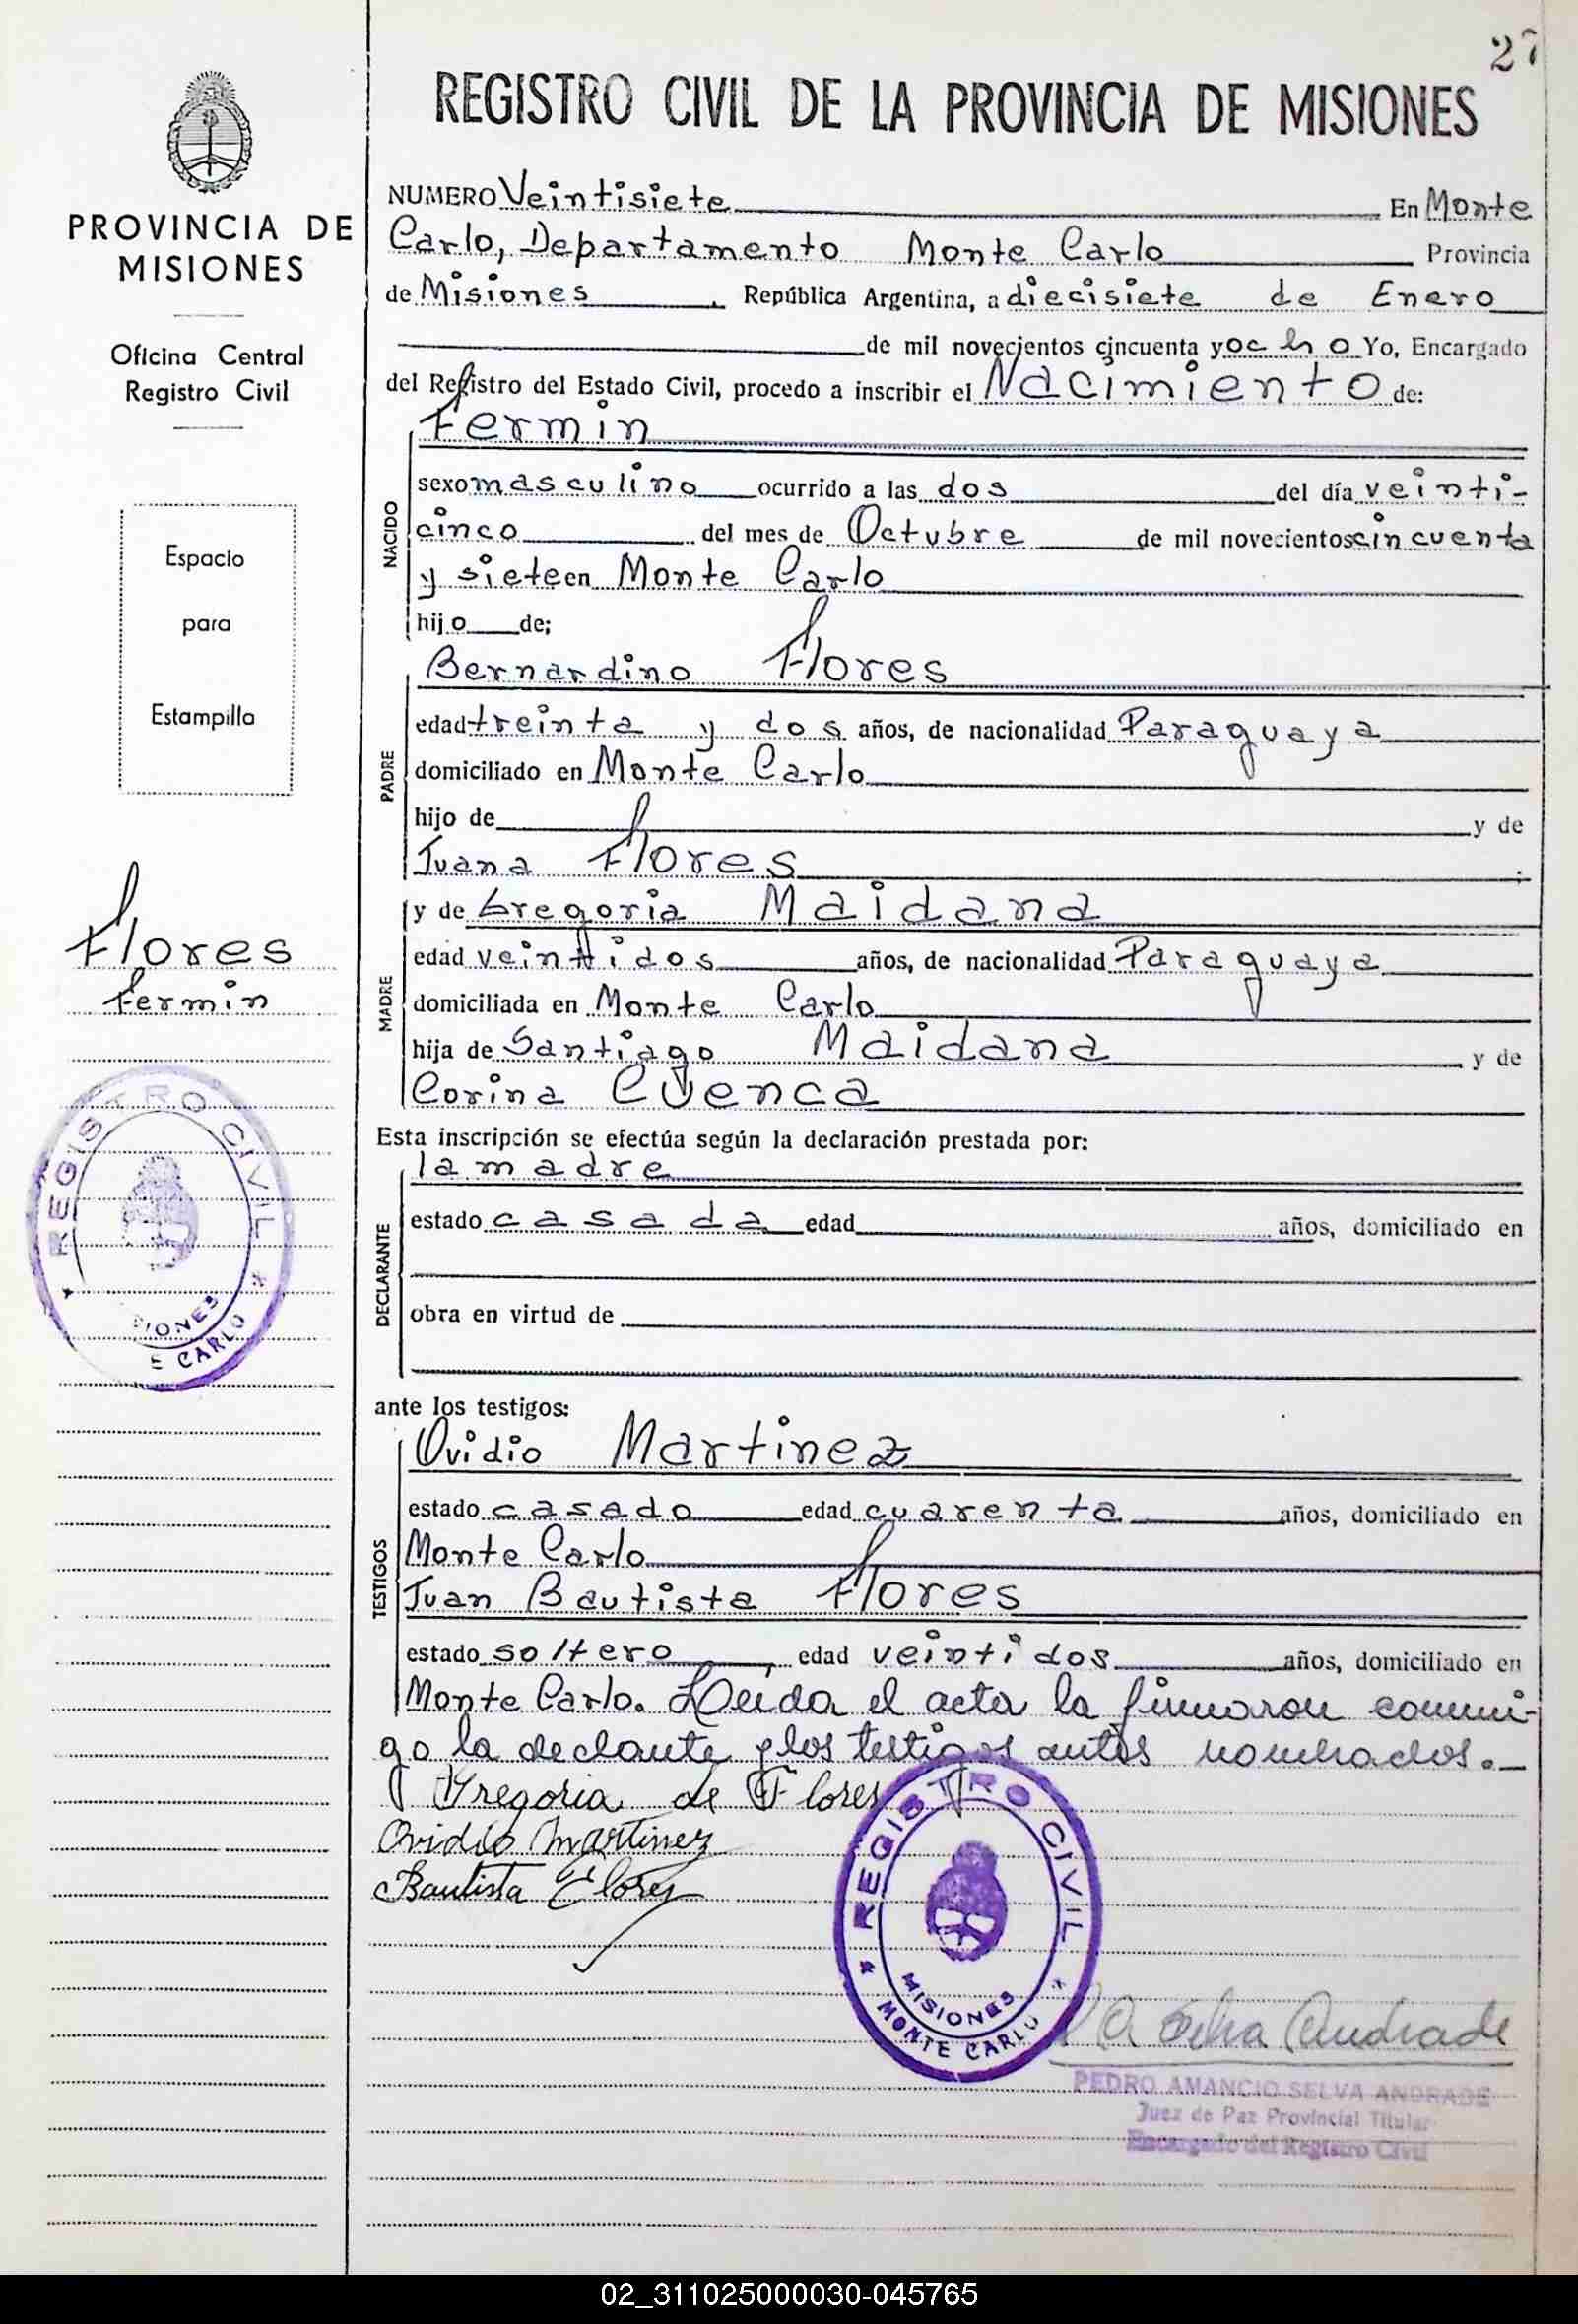 27
REGISTRO CIVIL DE LA PROVINCIA DE MISIONES
PROVINCIA DE
MISIONES
Oficina Central
Registro Civil
Espacio
para
Estampilla
Flores
Fermin
REGISTRO CIVIL
IONES
E CARLO
NUMERO Veintisiete En Monte
Carlo, Departamento Monte Carlo Provincia
de Misiones, República Argentina, a diecisiete de Enero
de mil novecientos cincuenta y ocho Yo, Encargado
del Registro del Estado Civil, procedo a inscribir el Nacimiento de:
NACIDO
Fermin
sexo masculino ocurrido a las dos del día veinti-
cinco del mes de Octubre de mil novecientos cincuenta
y siete en Monte Carlo
hijo de;
PADRE
Bernardino Flores
edad treinta y dos años, de nacionalidad Paraguaya
domiciliado en Monte Carlo
hijo de y de
Juana Flores ;
MADRE
y de Gregoria Maidana
edad veintidos años, de nacionalidad Paraguaya
domiciliada en Monte Carlo
hija de Santiago Maidana y de
Corina Cuenca
Esta inscripción se efectúa según la declaración prestada por:
DECLARANTE
la madre
estado casada edad años, domiciliado en
obra en virtud de
ante los testigos:
TESTIGOS
Ovidio Martinez
estado casado edad cuarenta años, domiciliado en
Monte Carlo
Juan Bautista Flores
estado soltero, edad veintidos años, domiciliado en
Monte Carlo. Leida el acta la firmaron conmi-
go la declante y los testigos antes nombrados.
Gregoria de Flores
Ovidio Martinez
Bautista Flores
REGISTRO CIVIL
MISIONES
MONTE CARLO
P A Selva Andrade
PEDRO AMANCIO SELVA ANDRADE
Juez de Paz Provincial Titular
Encargado del Registro Civil
02_311025000030-045765